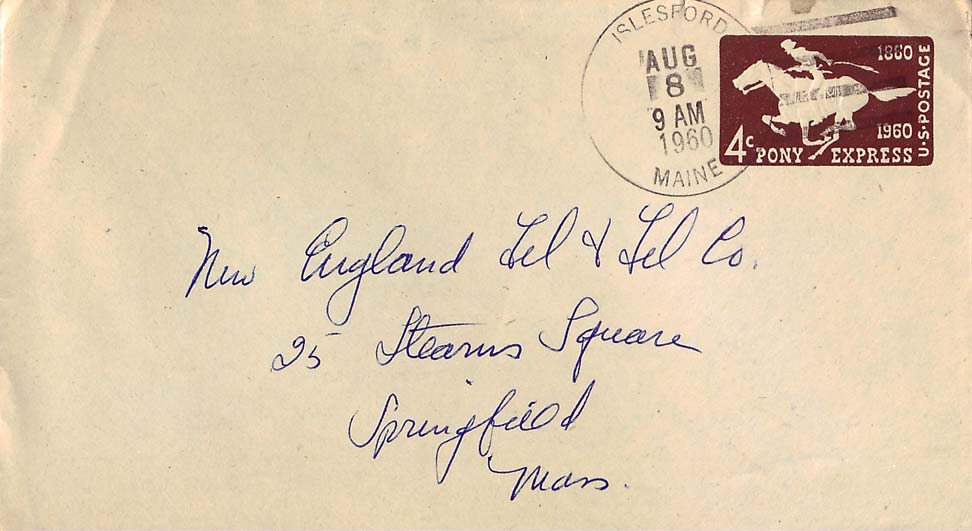 ISLESFORD
AUG
8
9 AM
1960
MAINE
1860
1960
U·S·POSTAGE
4c PONY EXPRESS
New England Tel & Tel Co.
25 Stearns Square
Springfield
Mass.